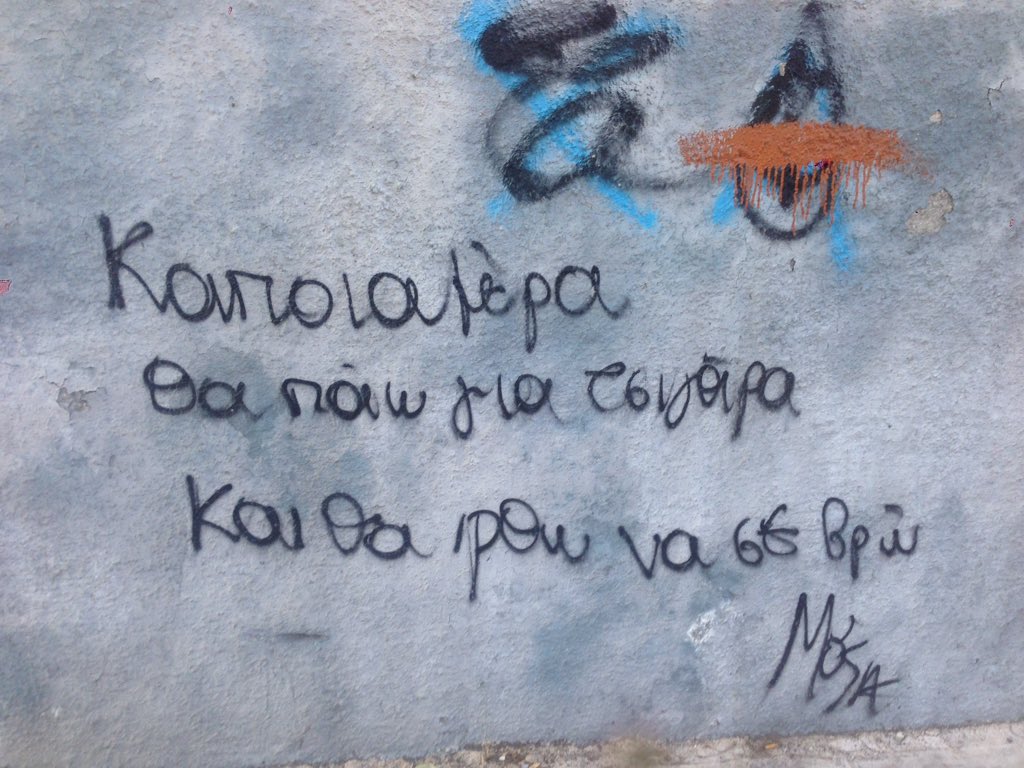 Καποια μέρα
θα πάω για τσιγάρα
και θα ρθω να σε βρώ